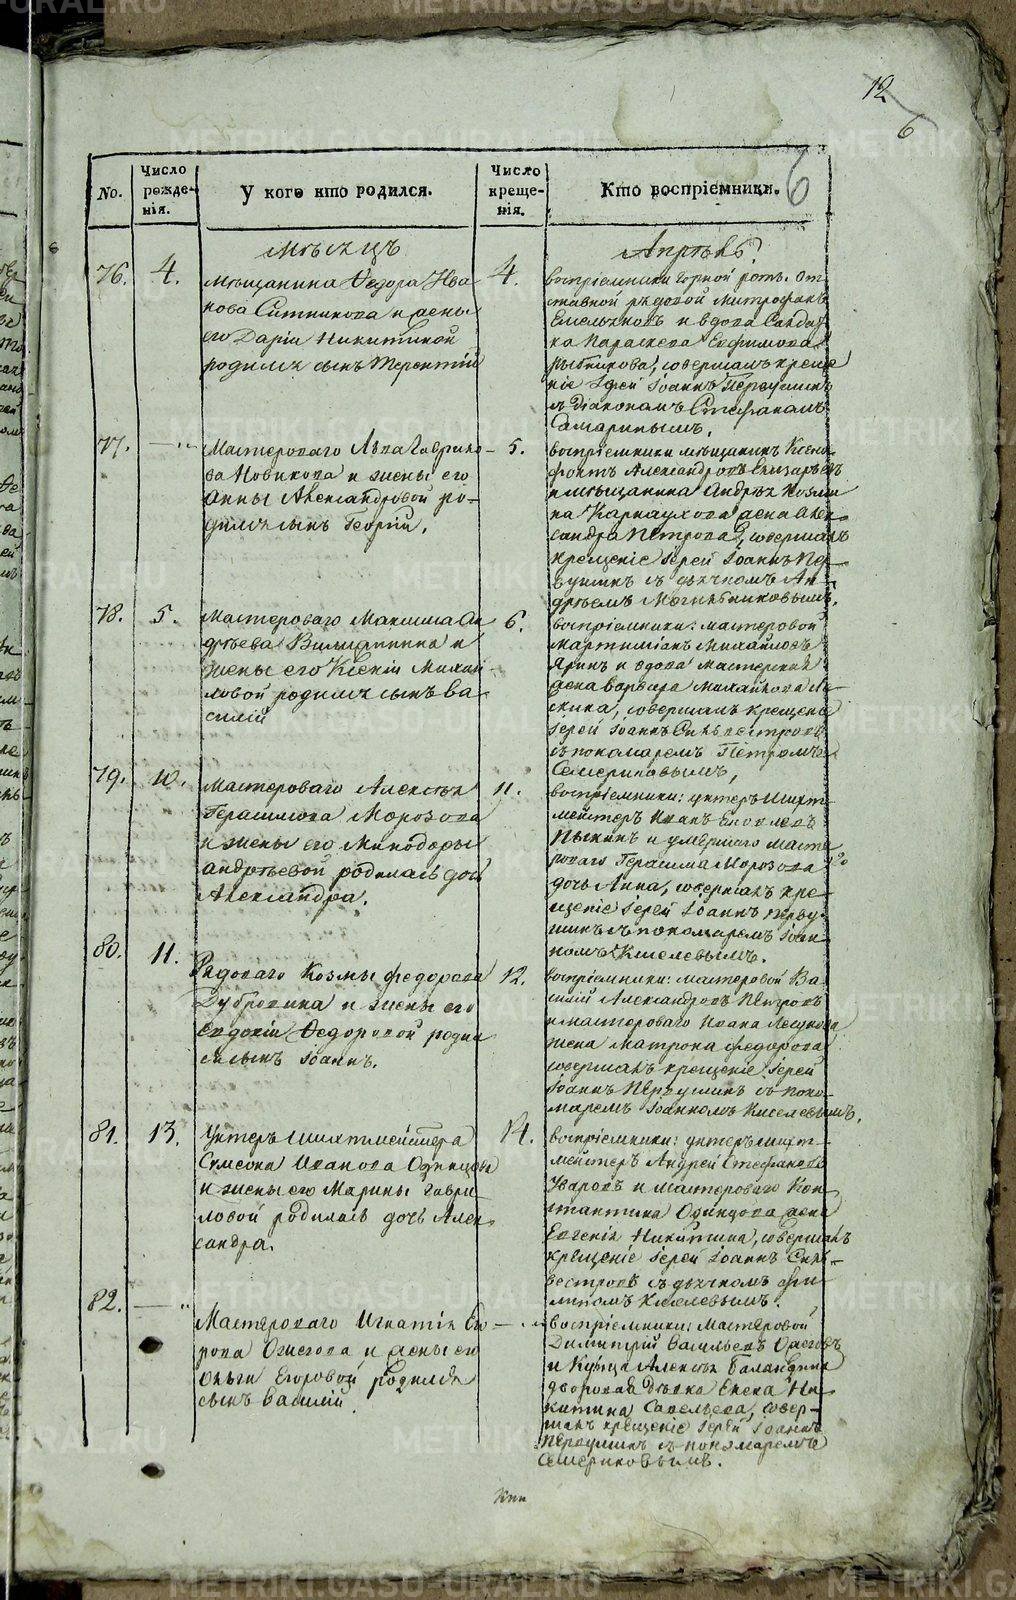 12
6
6
No.
Число рожде-нія.
У кого кто родился.
Число креще-нія.
Кто воспріемники.
Мѣсяцъ
Апрѣль
76.
4.
Мѣщанина Ѳедора Ива
нова Ситникова и жены
его Даріи Никитиной
родился сынъ Терентій
4.
воспріемники Горной роты от
ставной рядовой Митрофанъ
Емельяновъ и вдова Солдат
ка Параскева Евфимова
Рыбникова, совершалъ креще
ніе Іерей Іоаннъ Первушинъ
съ Діакономъ Стефаномъ
Самаринымъ.
77.
—"
Мастероваго Льва Гаврило
ва Новикова и жены его
Анны Александровой ро-
дился сынъ Георгій.
5.
воспріемники мѣщанинъ Ксено
фонтъ Александровъ Елизарьевъ
и мѣщанина Андрея Козми
на Карнаухова жена Алек
сандра Петрова, совершалъ
крещеніе Іерей Іоаннъ Пер
вушинъ съ дьячкомъ Ан-
дреемъ
78.
5.
Мастероваго Максима Ан
дрѣева и
жены его Ксеніи Михай
ловой родился сынъ Ва-
силій
6.
воспріемники: мастеровой
Мартиміанъ Михайловъ
Яринъ и вдова Мастерская
жена Варвара Михайлова
совершалъ крещеніе
Іерей Іоаннъ Сильвестровъ
съ пономаремъ Петромъ
Семериковымъ,
79.
10.
Мастероваго Алексѣя
Герасимова Морозова
и жены его Минодоры
Андрѣевой родилась дочь
Александра.
11.
воспріемники: унтеръ Шихт-
мейстеръ Иванъ Яковлевъ
и умершаго масте
роваго Герасима Морозова
дочь Анна, совершалъ кре-
щеніе Іерей Іоаннъ Перву-
шинъ съ пономаремъ Іоан
номъ Киселевымъ.
80.
11.
Рядоваго Козмы Федорова
Дубровина и жены его
Евдокіи Ѳедоровой родил
ся сынъ Іоаннъ.
12.
воспріемники: мастеровой Ва-
силій Александровъ Петровъ
и мастероваго Ивана
жена Матрона Федорова
совершалъ крещеніе Іерей
Іоаннъ Первушинъ съ поно-
маремъ Іоанномъ Киселевымъ.
81.
13.
Унтеръ Шихтмейстера
Симеона Иванова Одинцова
и жены его Марины Гаври-
ловой родилась дочь Алек-
сандра.
14.
воспріемники: унтеръ шихт-
мейстеръ Андрей Стефановъ
Уваровъ и мастероваго Кон
стантина Одинцова жена
Евгенія Никитина, совершалъ
крещеніе Іерей Іоаннъ Силь-
вестровъ съ дьячкомъ Фи-
липомъ Киселевымъ.
82.
—"
Мастероваго Игнатія Его
рова Ожегова и жены его
Ольги Егоровой родился
сынъ Василій
—"
воспріемники: Мастеровой
Димитрій Васильевъ Ожеговъ
и Купца Алексѣя Баландина
дворовая дѣвка Елена Ни-
китина Савельева, совер-
шалъ крещеніе Іерей Іоаннъ
Первушинъ съ пономаремъ
Семериковымъ.
METRIKI.GASO-URAL.RU